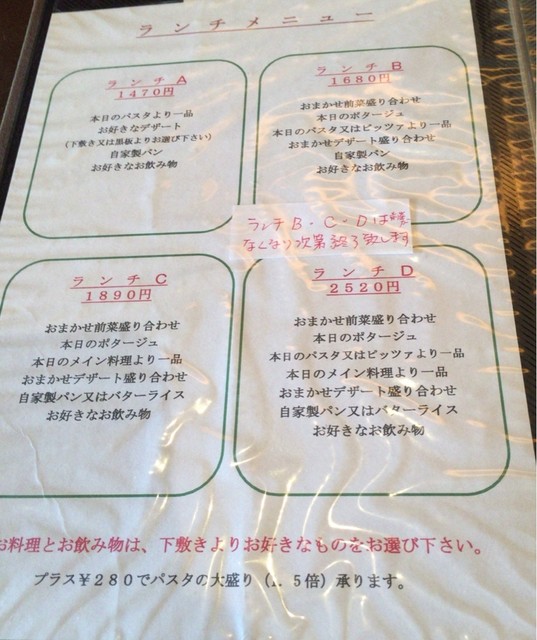 ランチメニュー
ランチA
1470円
本日のパスタより一品
お好きなデザート
(下敷き又は黒板よりお選び下さい)
自家製パン
お好きなお飲み物
ランチB
1680円
おまかせ前菜盛り合わせ
本日のポタージュ
本日のパスタ又はピッツァより一品
おまかせデザート盛り合わせ
自家製パン
お好きなお飲み物
ランチB・C・Dは
なくなり次第終了致します
ランチC
1890円
おまかせ前菜盛り合わせ
本日のポタージュ
本日のメイン料理より一品
おまかせデザート盛り合わせ
自家製パン又はバターライス
お好きなお飲み物
ランチD
2520円
おまかせ前菜盛り合わせ
本日のポタージュ
本日のパスタ又はピッツァより一品
本日のメイン料理より一品
おまかせデザート盛り合わせ
自家製パン又はバターライス
お好きなお飲み物
お料理とお飲み物は、下敷きよりお好きなものをお選び下さい。
プラス¥280でパスタの大盛り(1.5倍)承ります。